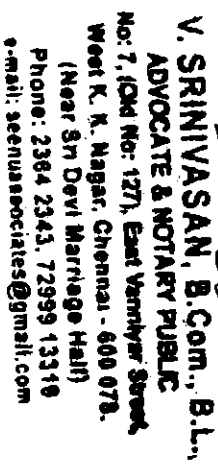 V. SRINIVASAN, B.Com., B.L.,
ADVOCATE & NOTARY PUBLIC
No: 7, (Old No: 127), East Vanniyar Street,
West K. K. Nagar, Chennai - 600 078.
(Near Sri Devi Marriage Hall)
Phone: 2364 2343, 72999 13318
e-mail: seenuassociates@gmail.com